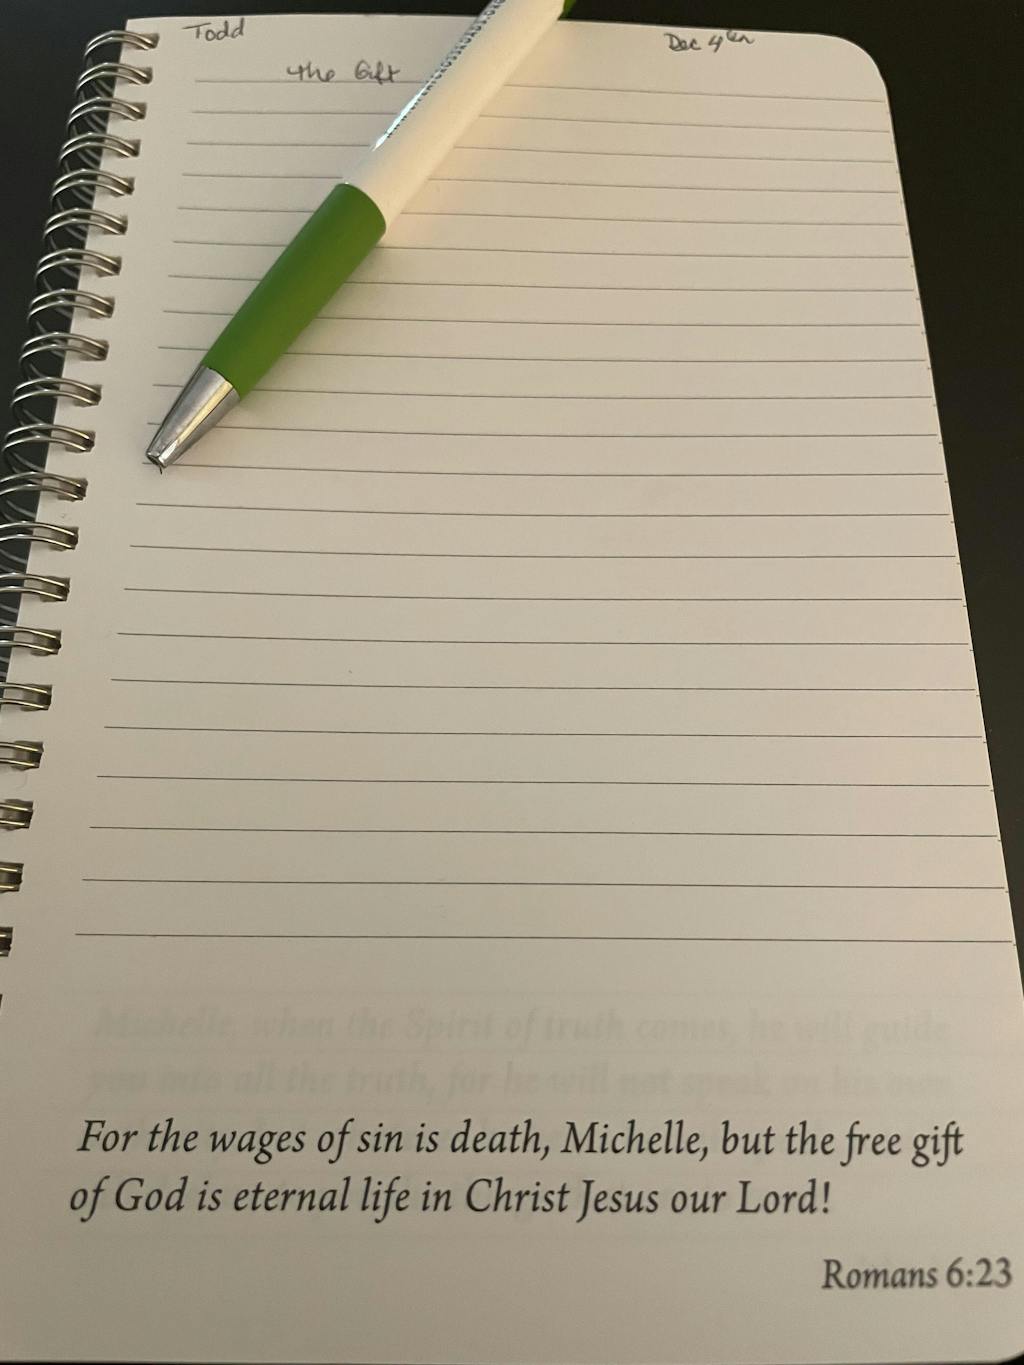 Todd
Dec 4th
The Gift
Michelle, when the Spirit of truth comes, he will guide
you into all the truth, for he will not speak on his own
For the wages of sin is death, Michelle, but the free gift
of God is eternal life in Christ Jesus our Lord!
Romans 6:23